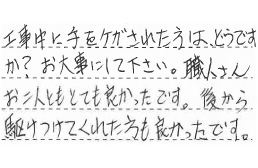 工事中に手をケガされた方は、どうです
か？お大事にして下さい。職人さん
お二人ともとても良かったです。後から
駆けつけてくれた方も良かったです。